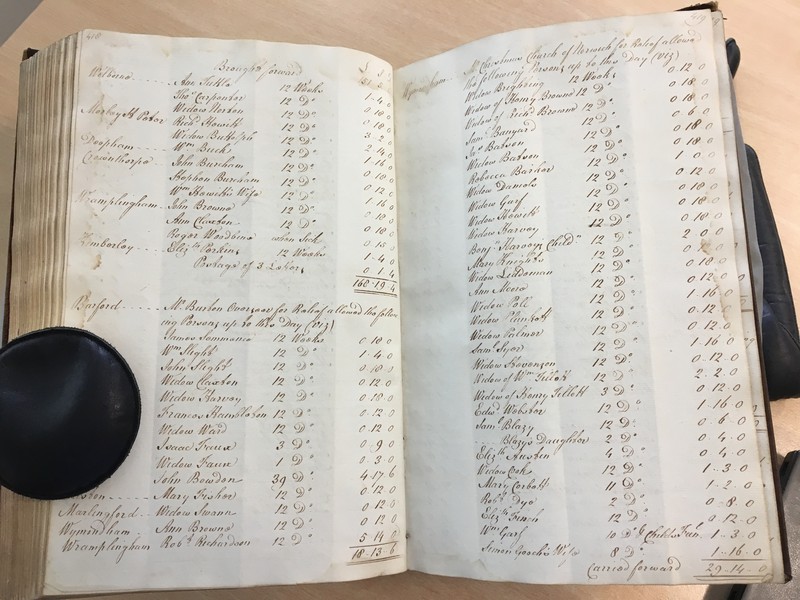 418
Brought forward
Ann Suttle 12 Weeks
Thos Carpenter 12 Do 1-4-0
Widow Norton 12 Do 0 18 0
Morley St Peter Richd Howitt 12 Do
Widow Buttolph 12 Do 3-2-0
Deopham Wm Buck 12 Do 2-14-0
Crownthorpe John Burcham 12 Do 1-16-0
Stephen Burcham 12 Do
Wm Howitt's Wife 12 Do 0 12 0
Wramplingham John Browne 12 Do 1-16-0
Ann Claxton 12 Do
Roger Woodbine when Sick
Kimberley Elizth Perkins 12 Weeks 1-4-0
Postage of 3 Letters 0-1-4
160-19-4
Barford Mr Burton Overseer for Relief allowed the follow
ing Persons up to this Day (Viz)
James Simmons 12 Weeks
Wm Flight 12 Do 1-4-0
John Flight 12 Do 0 18 0
Widow Claxton 12 Do 0 12 0
Widow Harvoy 12 Do 0 18 0
Frances 12 Do 0 12 0
Widow Ward 12 Do 0 12 0
Isaac 3 Do 0 9 0
Widow 1 Do 0 3 0
John Bowdon 39 Do 4-17-6
Mary Fisher 12 Do 0 12 0
Marlingford Widow Swann 12 Do 0 12 0
Wymineham Ann Browne 12 Do 0 12 0
Wramplingham Robt Richardson 12 Do 5-14-0
18-13-6
419
Wymineham Mr Church of Norwich for Relief allowed
the following Persons up to this Day (Viz)
Widow 12 Weeks 0 12 0
Widow of Henry Browne 12 Do 0 18 0
Widow of Richd Browne 12 Do 0 18 0
Saml Banyard 12 Do 0 6 0
Jas Batson 12 Do 0 18 0
Widow Batson 12 Do 0 18 0
Rebecca Barker 12 Do 1 0 0
Widow Daniels 12 Do 0 12 0
Widow Garf 12 Do 0 18 0
Widow Howitt 12 Do 0 18 0
Widow Harvoy 12 Do 0 18 0
Benjn Harvoy's Child 12 Do 2-0-0
Mary Knights 12 Do
Widow Lindorman 12 Do 0 18 0
Ann Moore 12 Do 0 12 0
Widow Poll 12 Do 1-16-0
Widow Plunkett 12 Do 0-12-0
Widow Palmer 12 Do 0 12 0
Saml 12 Do 1-16 0
Widow Stevenson 12 Do 0-12-0
Widow of Wm Tillett 12 Do 2-2-0
Widow of Henry Tillett 3 Do 0 12 0
Edwd Webster 12 Do 1-16-0
Saml Blazy 12 Do 0-6-0
Blazy's Daughter 2 Do 0-4-0
Elizth Austen 4 Do 0-4-0
Widow Cok 12 Do 1-3-0
Mary Corbett 11 Do 1-2-0
Robt Dyo 2 Do 0-8-0
Elizth French 12 Do 0-12-0
Wm Garf 10 Do & Child's Fun. 1-3-0
Simon Gooch's Wife 8 Do 1-16-0
Carried forward 29-14-0